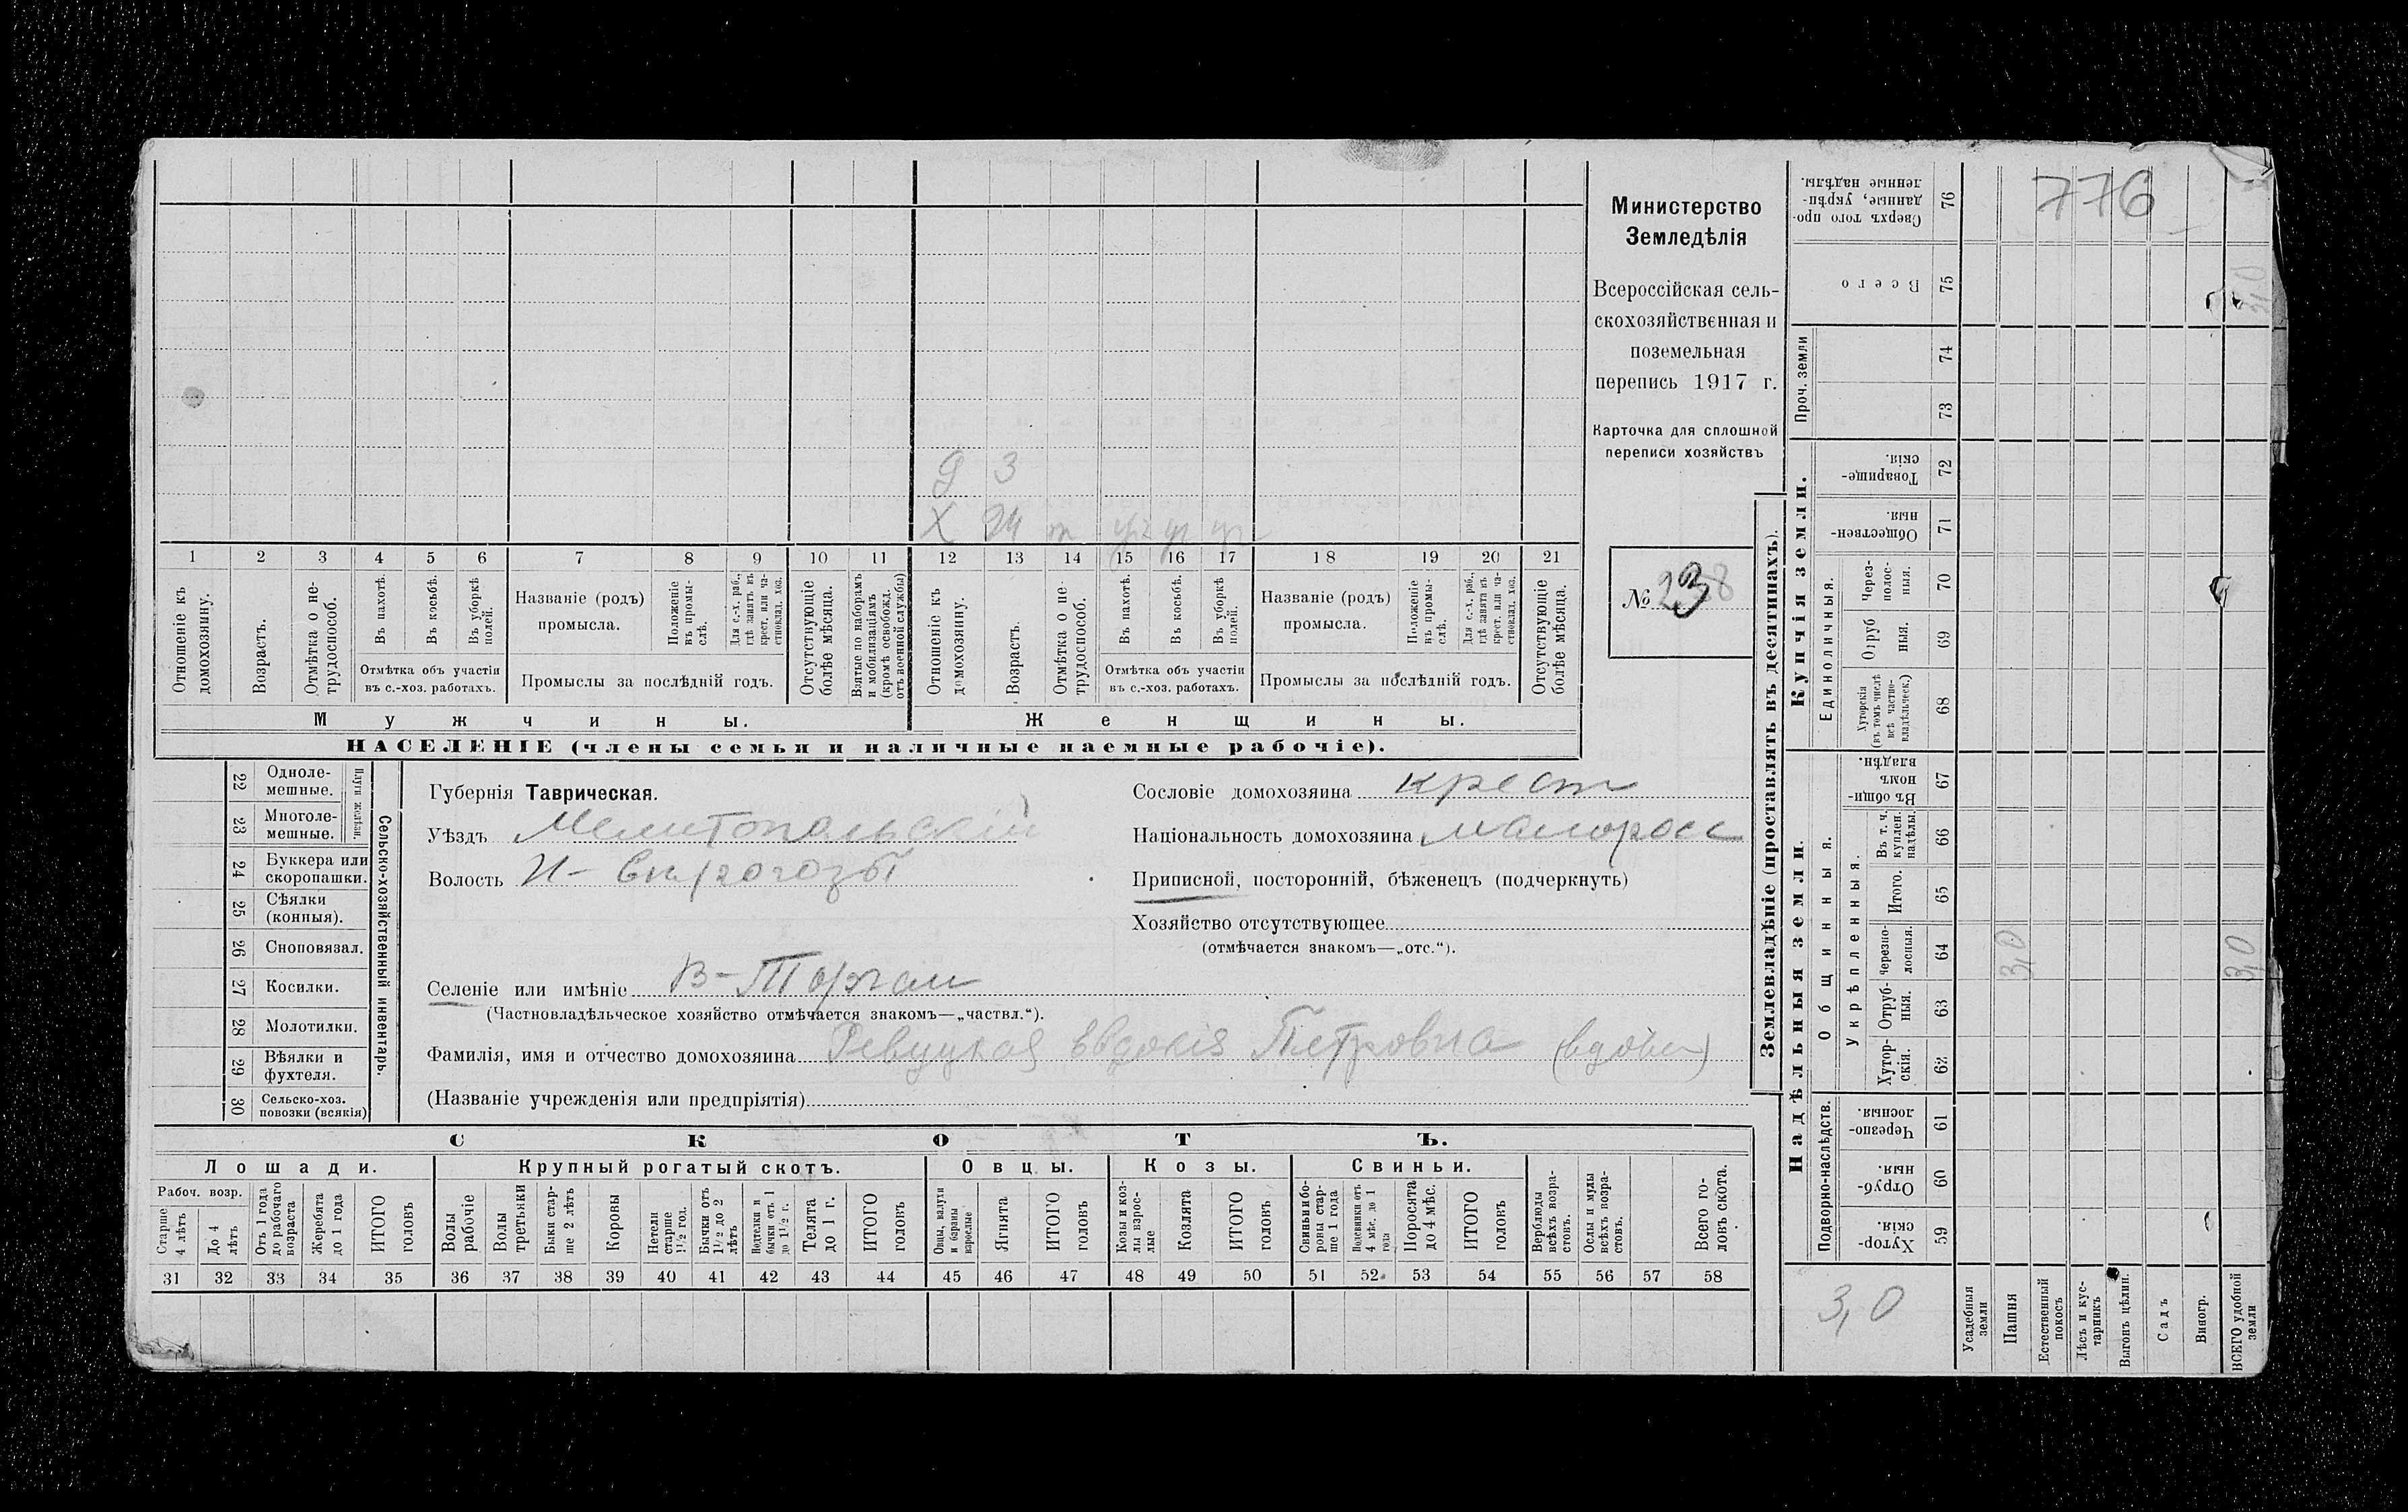 Министерство
Земледѣлія
Всероссійская сель-
скохозяйственная и
поземельная
перепись 1917 г.
Карточка для сплошной
переписи хозяйствъ
№ 238
776
д 3
Х 24
1 2 3 4 5 6 7 8 9 10 11 12 13 14 15 16 17 18 19 20 21
Отношеніе къ домохозяину.
Возрастъ.
Отмѣтка о не-трудоспособ.
Въ пахотѣ.
Въ косьбѣ.
Въ уборкѣ полей.
Отмѣтка объ участіи
въ с.-хоз. работахъ.
Названіе (родъ)
промысла.
Положеніе въ промы-слѣ.
Для с.-х. раб., гдѣ занятъ въ крест. или ча-стновлад. хоз.
Промыслы за послѣдній годъ.
Отсутствующіе болѣе мѣсяца.
Взятые по наборамъ и мобилизаціямъ (кромѣ освобожд. отъ военной службы)
Отношеніе къ домохозяину.
Возрастъ.
Отмѣтка о не-трудоспособ.
Въ пахотѣ.
Въ косьбѣ.
Въ уборкѣ полей.
Отмѣтка объ участіи
въ с.-хоз. работахъ.
Названіе (родъ)
промысла.
Положеніе въ промы-слѣ.
Для с.-х. раб., гдѣ занята въ крест. или ча-стновлад. хоз.
Промыслы за послѣдній годъ.
Отсутствующіе болѣе мѣсяца.
Мужчины.
Женщины.
НАСЕЛЕНІЕ (члены семьи и наличные наемные рабочіе).
22 Одноле-мешные.
23 Многоле-мешные.
Плуги желѣзн.
24 Буккера или скоропашки.
25 Сѣялки (конныя).
26 Сноповязал.
27 Косилки.
28 Молотилки.
29 Вѣялки и фухтеля.
30 Сельско-хоз. повозки (всякія)
Сельско-хозяйственный инвентарь.
Губернія Таврическая.
Уѣздъ Мелитопольскій
Волость Н-Сирогозы
Селеніе или имѣніе В-Торгаи
(Частновладѣльческое хозяйство отмѣчается знакомъ—„частвл.“).
Фамилія, имя и отчество домохозяина Ревуцкая Евдокія Петровна (вдова)
(Названіе учрежденія или предпріятія)
Сословіе домохозяина крест
Національность домохозяина малоросс
Приписной, посторонній, бѣженецъ (подчеркнуть)
Хозяйство отсутствующее
(отмѣчается знакомъ—„отс.“).
СКОТЪ.
Лошади.
Крупный рогатый скотъ.
Овцы.
Козы.
Свиньи.
Рабоч. возр.
Старше 4 лѣтъ
До 4 лѣтъ
Отъ 1 года до рабочаго возраста
Жеребята до 1 года
ИТОГО головъ
Волы рабочіе
Волы третьяки
Быки стар-ше 2 лѣтъ
Коровы
Нетели старше 1 1/2 год.
Бычки отъ 1 1/2 до 2 лѣтъ
Подтелки и бычки отъ 1 до 1 1/2 г.
Телята до 1 г.
ИТОГО головъ
Овцы, валухи и бараны взрослые
Ягнята
ИТОГО головъ
Козы и коз-лы взрос-лые
Козлята
ИТОГО головъ
Свиньи и бо-ровы стар-ше 1 года
Подсвинки отъ 4 мѣс. до 1 года
Поросята до 4 мѣс.
ИТОГО головъ
Верблюды всѣхъ возра-стовъ.
Ослы и мулы всѣхъ возра-стовъ.
Всего го-ловъ скота.
31 32 33 34 35 36 37 38 39 40 41 42 43 44 45 46 47 48 49 50 51 52 53 54 55 56 57 58
Землевладѣніе (проставлять въ десятинахъ).
Надѣльныя земли.
Купчія земли.
Проч. земли
Подворно-наслѣдств.
Общинныя.
Укрѣпленныя.
Единоличныя.
Сверхъ того про-данные, укрѣп-ленные надѣлы. 76
Всего 75
74
73
Товарище-скія. 72
Обществен-ныя. 71
Через-полос-ныя. 70
Отруб ныя. 69
Хуторскія (въ томъ числѣ всѣ частно-владѣльческ.) 68
Въ общин-номъ владѣн. 67
Въ т. ч. куплен. надѣлы. 66
Итого. 65
Черезпо-лосныя. 64
Отруб-ныя. 63
Хутор-скія. 62
Черезпо-лосныя. 61
Отруб-ныя. 60
Хутор-скія. 59
3,0
3,0
3,0
3,0
Усадебныя земли
Пашня
Естественный покосъ
Лѣсъ и кус-тарникъ
Выгонъ цѣлин.
Садъ
Виногр.
ВСЕГО удобной земли